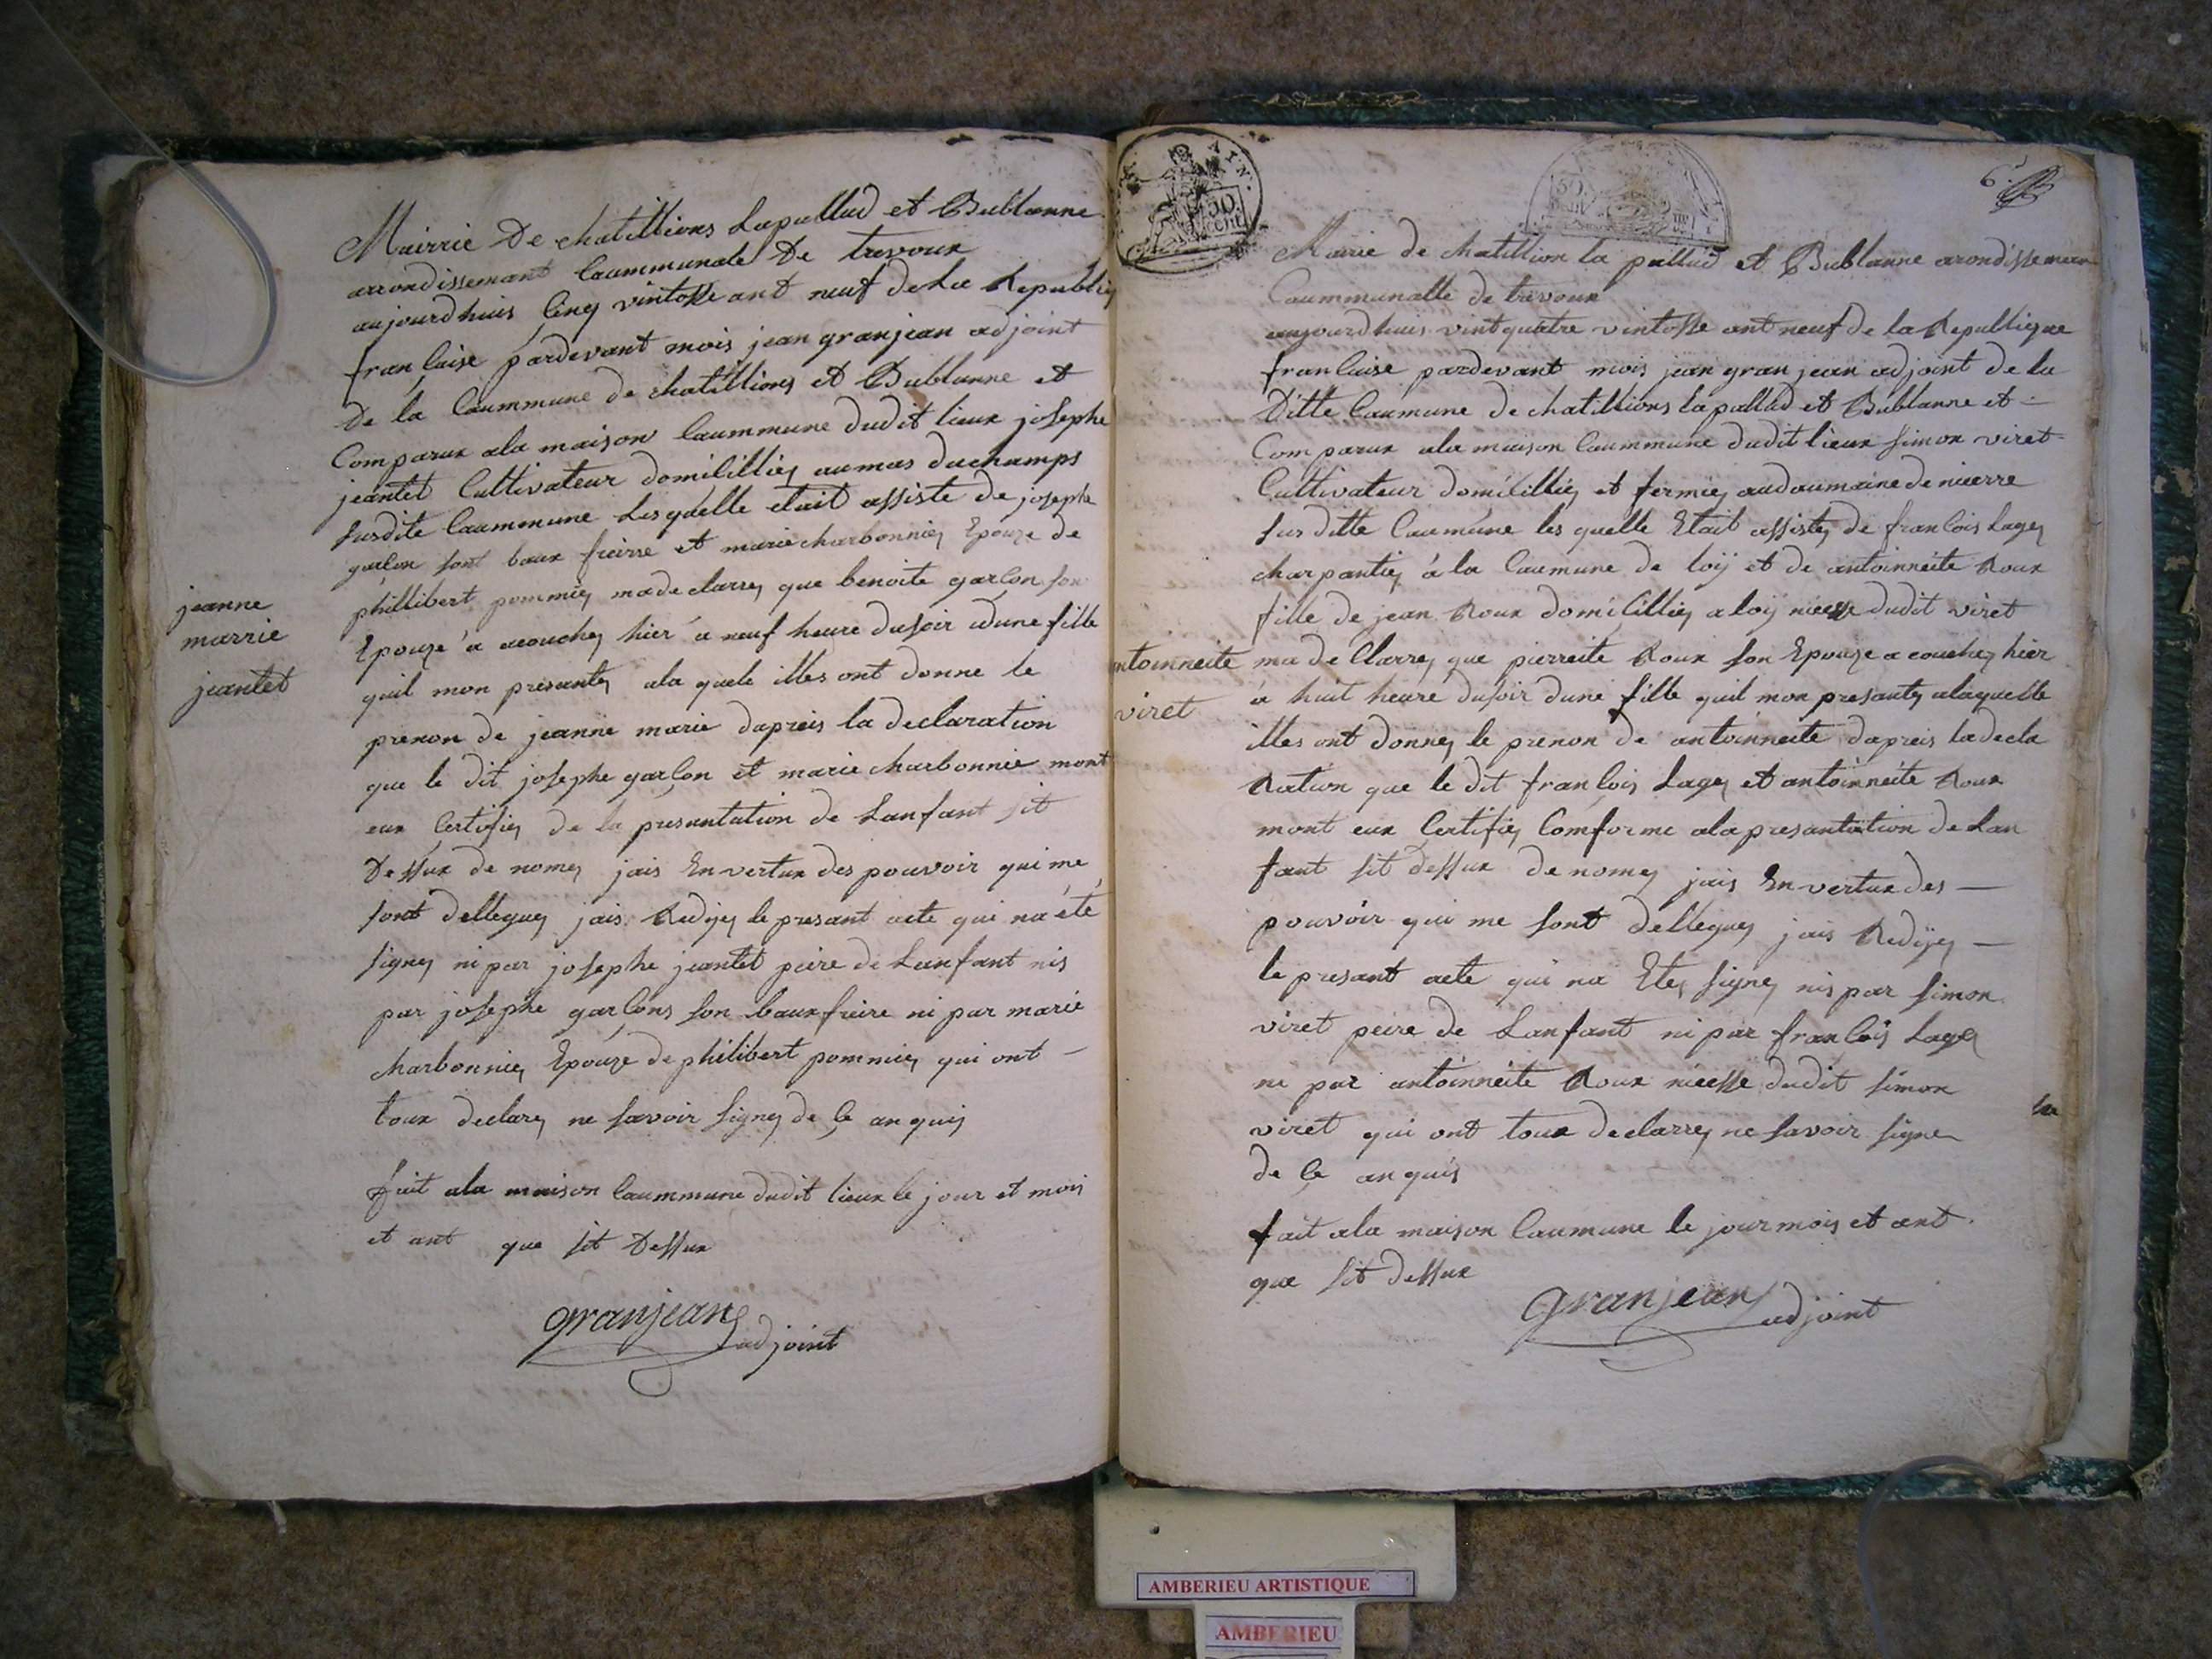 Mairrie De chatillions Lapallud et Bublanne
arrondissemant Caummunale De trevoux
aujourdhuis Cinq vintosse ant neuf de La Republiq
franCaise pardevant mois jean granjean adjoint
De la Caummune de chatillions et Bublanne et
Comparux ala maison Caummune dudit lieux josephe
jeantet Cultivateur domiCilliez au mas duchamps
susdite Caummune Lesquelle etait assiste de josephe
garCon sont baux freirre et marie charbonniez Epouze de
phillibert pommiez ma declarrez que benoite garCon son
Epouze a acouchez hier a neuf heure dusoir dune fille
quil mon presantez ala quele illes ont donne le
prenon de jeanne marie dapreis la declaration
que le dit josephe garCon et marie charbonnie mont
eux Certifiez de la presantation de Lanfant sit
Dessux de nomez jais En vertux des pouvoir qui me
sont delleguez jais Redijez le presant acte qui na été
signez ni par josephe jeantet peire de Lanfant nis
par josephe garCons son baux freire ni par marie
charbonniez Epouze de philibert pommiez qui ont –
toux declarez ne savoir signez de Ce anquis
fait ala maison Caummune dudit lieux le jour et mois
et ant que sit Dessux
granjean
adjoint
jeanne
marrie
jeantet
AIN.
50.
CENT.
50.
6
Mairie de chatillion la pallud et Bublanne arondissemean
Caummunalle de trevoux
aujourdhuis vint quatre vintosse ant neuf de la Republique
franCaise pardevant mois jean granjean adjoint de la
Ditte Caumune de chatillions lapallud et Bublanne et –
Comparux ala maison Caummune dudit lieux simon viret
Cultivateur domiCilliez et fermiez audaumaine de nierre
susditte Caumune les quelle Etait assistez de franCois Lagez
charpantiez à la Caumune de loÿ et de antoinneite Roux
fille de jean Roux domiCilliez a loÿ nieesse dudit viret
ma de Clarrez que pierreite Roux son Epouze a couchez hier
a huit heure dusoir dune fille quil mon presantez alaquelle
illes ont donnez le prenon de antoinneite dapreis ladecla
Ration que le dit franCois Lagez et antoinneite Roux
mont eux Certifiez Comforme ala presantation de Lan
fant sit dessux de nomez jais En vertux des —
pouvoir qui me sont delleguez jais Redijez —
le presant acte qui na Etez signez nis par simon
viret peire de Lanfant ni par franCois Lagez
ni par antoinneite Roux nieesse dudit simon
viret qui ont toux declarrez ne savoir signe
de Ce anquis
fait ala maison Caumune le jour mois et ant
que sit dessux
granjean
adjoint
antoinneite
viret
AMBERIEU ARTISTIQUE
AMBERIEU